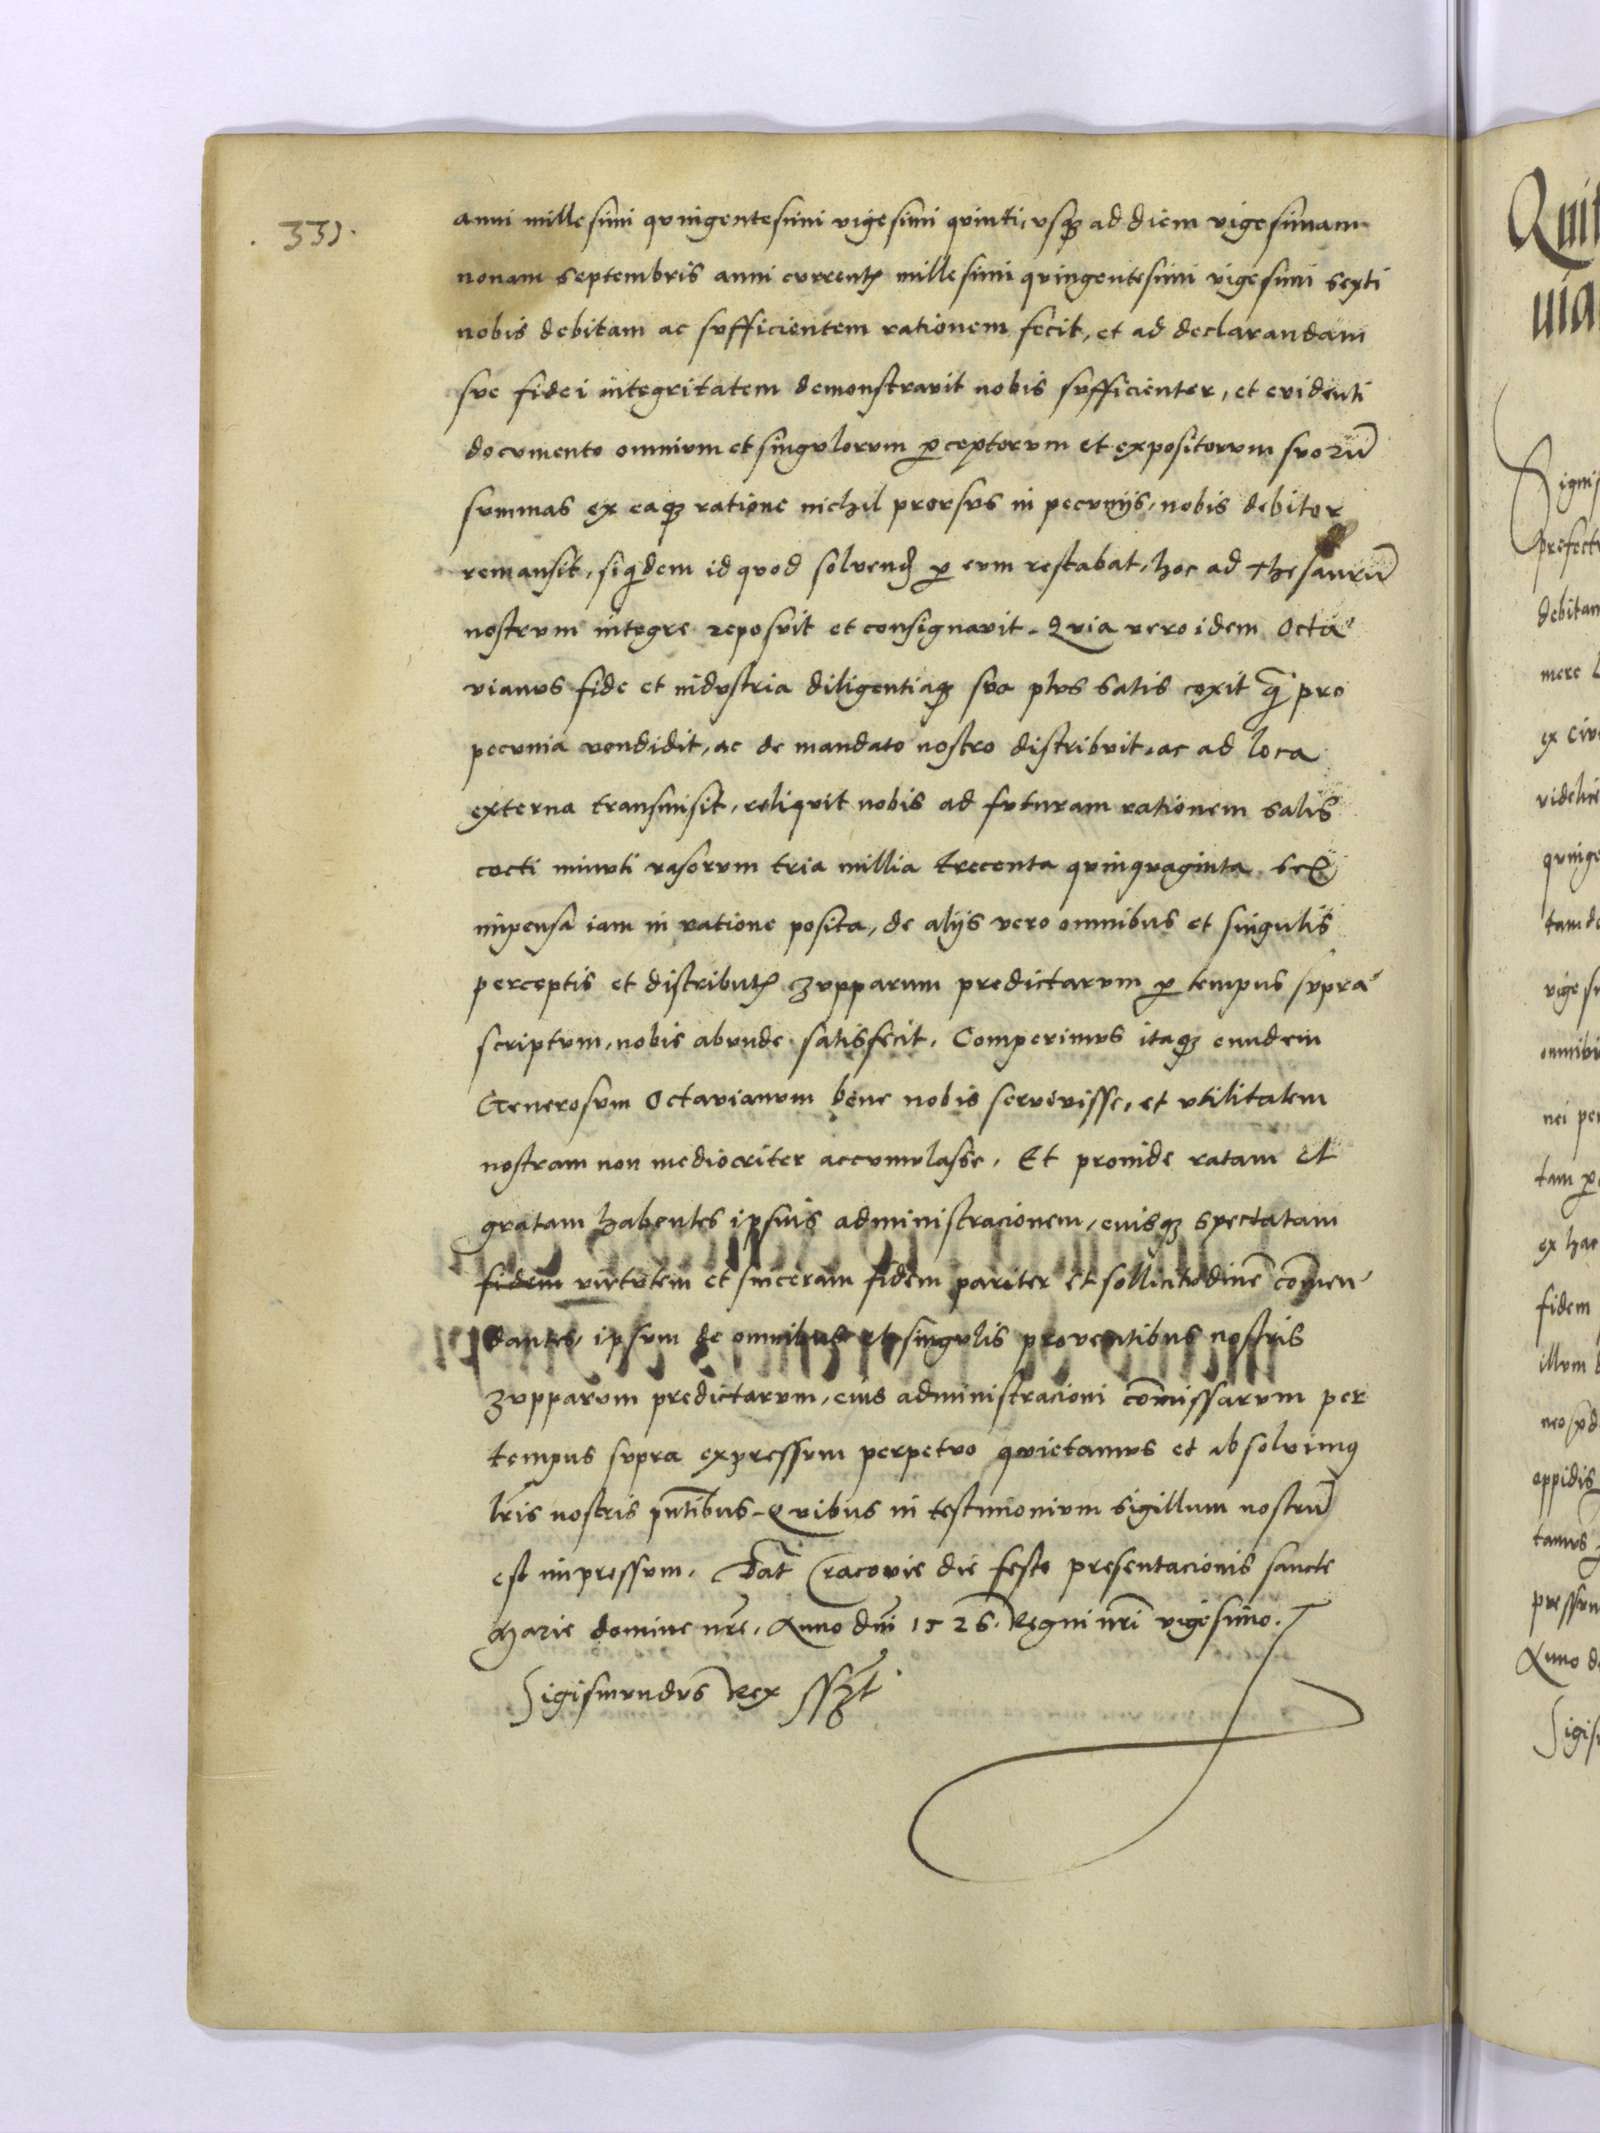 . 331.
anni millesimi quingentesimi vigesimi quinti, vsqꝫ ad diem vigesimam
nonam septembris anni currentꝭ millesimi quingentesimi vigesimi sexti
nobis debitam ac sufficientem rationem fecit, et ad declarandam
sue fidei integritatem demonstrauit nobis sufficienter, et euidenti
documento omnium et singulorum ꝑceptorum et expositorum suorū
summas ex eaqꝫ ratione nichil prorsus in pecunijs, nobis debitor
remansit, siqͥdem id quod soluendꝭ ꝑ eum restabat, hoc ad thesaurū
nostrum integre reposuit et consignauit. Quia vero idem Octa-
vianus fide et industria diligentiaqꝫ sua plus salis coxit qͣ pro
pecunia vendidit, ac de mandato nostro distribuit, ac ad loca
externa transmisit, reliquit nobis ad futuram rationem salis
cocti minuti vasorum tria millia trecenta quinquaginta sex
impensa iam in ratione posita, de alijs vero omnibus et singulis
perceptis et distributꝭ zupparum predictarum ꝑ tempus supra-
scriptum, nobis abunde satisfecit. Comperimus itaqꝫ eundem
Generosum Octauianum bene nobis seruiuisse, et vtilitatem
nostram non mediocriter accumulasse. Et proinde ratam et
gratam habentes ipsius administracionem, eiusqꝫ spectatam
fidem virtutem et sinceram fidem pariter et sollicitudinē com̄en-
dantes, ipsum de omnibus et singulis prouentibus nostris
zupparum predictarum, eius administracioni com̄issarum per
tempus supra expressum perpetuo quietamus et absoluimꝰ
lr̄is nostris pn̄tibus. Quibus in testimonium sigillum nostrū
est impressum. Dat̄ Cracouie die festo presentacionis sancte
Marie domine nr̄e, Anno dn̄i 1526. Regni nr̄i vigesimo.
Sigismundus Rex sszt
Quit
uia
Signis
prefect
debitam
mere
ex Civ
videlic
quinge
tam de
vigesi
omnib
nei per
tam ꝑ
ex hac
fidem
illum
oppidis
tamus
pressum
Anno d
Sigis